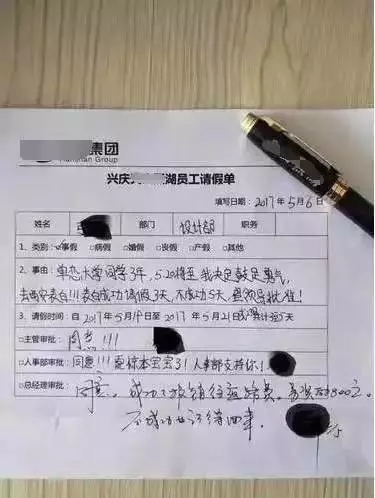 集团
Group
兴庆 湖员工请假单
填写日期:2017年5月6日
姓名 部门 设计部 职务
1、类别:☑事假 □病假 □婚假 □丧假 □产假 □其他
2、事由:单恋大学同学3年,5.20将至,我决定鼓足勇气,
去西安表白!!!表白成功请假3天,不成功5天,望领导批准!
3、请假时间:自2017年5月19日至2017年5月21日 共计 5天
□主管审批: 同意!!!
□人事部审批:同意!!! 人事部支持你!
□总经理审批: 同意。成功了报销往返路费。 800元。
不成功也记得回来。